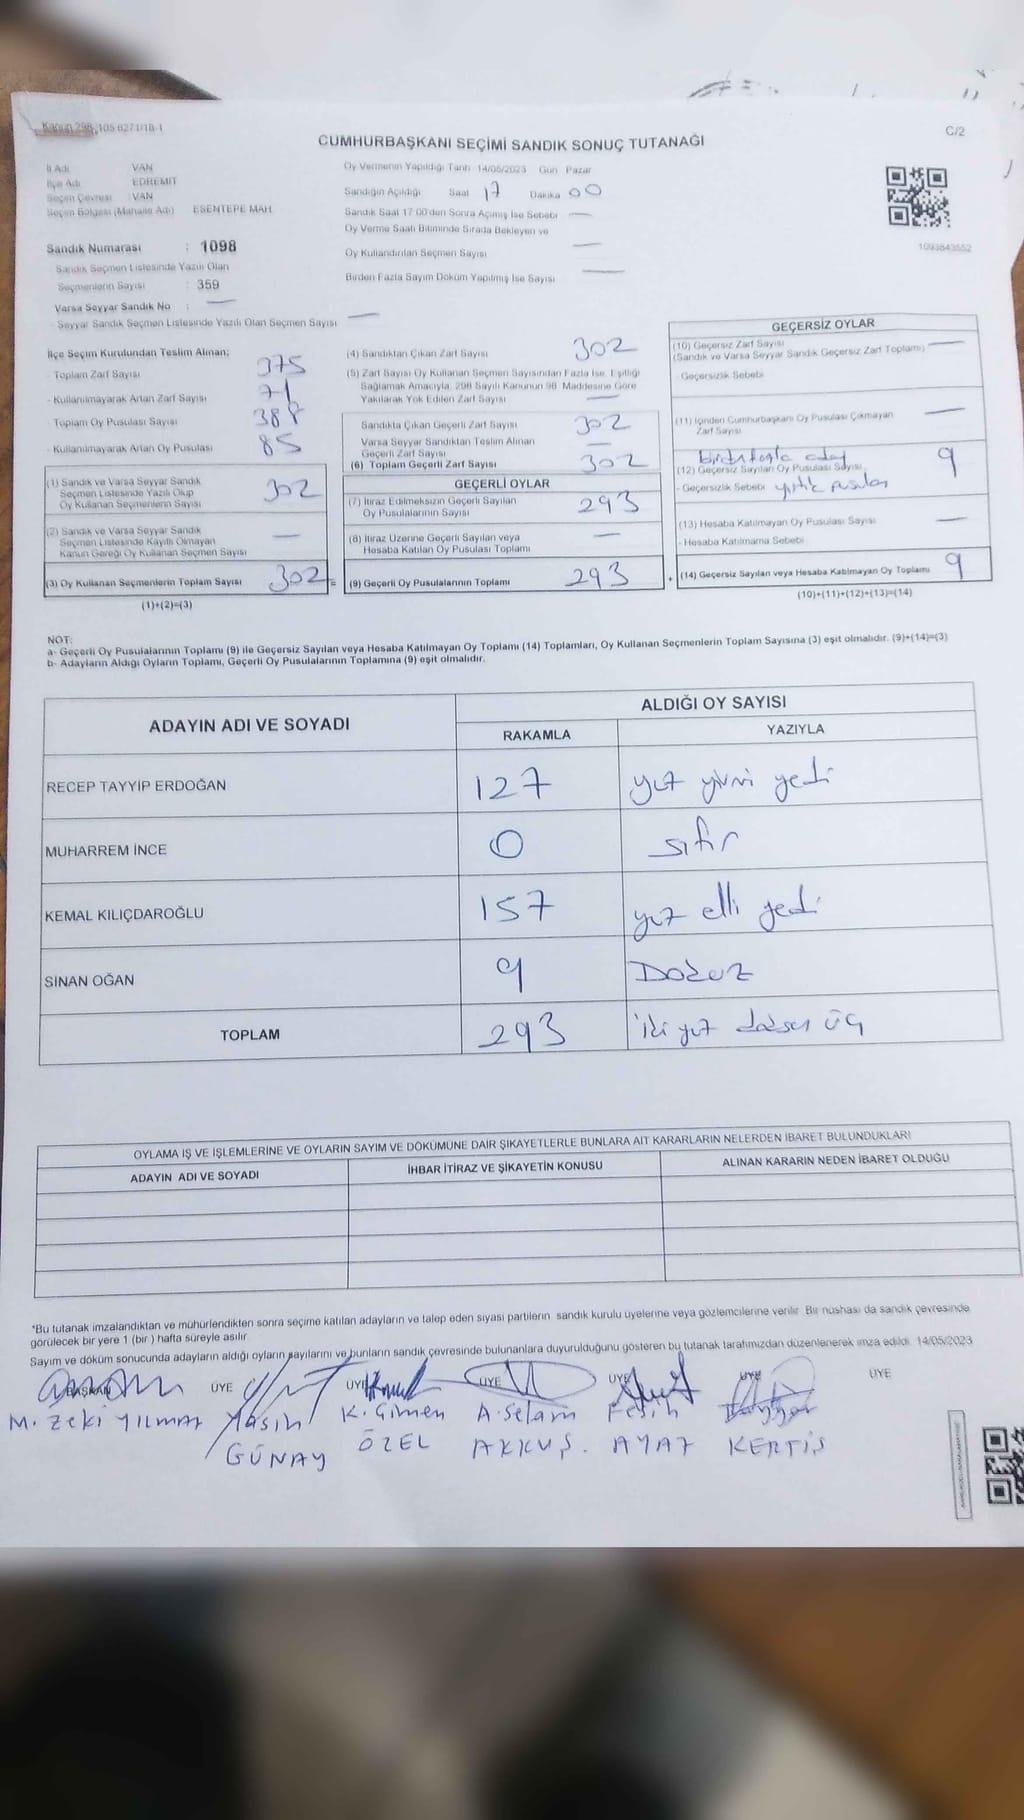 Kanun 298, 105 627 1/1B-1
C/2
CUMHURBAŞKANI SEÇİMİ SANDIK SONUÇ TUTANAĞI
İl Adı : VAN
İlçe Adı : EDREMİT
Seçim Çevresi : VAN
Seçim Bölgesi (Mahalle Adı) ESENTEPE MAH.
Sandık Numarası : 1098
Sandık Seçmen Listesinde Yazılı Olan
Seçmenlerin Sayısı : 359
Varsa Seyyar Sandık No : —
- Seyyar Sandık Seçmen Listesinde Yazılı Olan Seçmen Sayısı —
Oy Vermenin Yapıldığı Tarih 14/05/2023 Gün Pazar
Sandığın Açıldığı Saat 17 Dakika 00
Sandık Saat 17 00'den Sonra Açımış İse Sebebi —
Oy Verme Saati Bitiminde Sırada Bekleyen ve
Oy Kullandırılan Seçmen Sayısı —
Birden Fazla Sayım Döküm Yapılmış İse Sayısı —
1093843552
İlçe Seçim Kurulundan Teslim Alınan;
- Toplam Zarf Sayısı 375
- Kullanılmayarak Artan Zarf Sayısı 71
- Toplam Oy Pusulası Sayısı 388
- Kullanılmayarak Artan Oy Pusulası 85
(1) Sandık ve Varsa Seyyar Sandık
Seçmen Listesinde Yazılı Olup
Oy Kullanan Seçmenlerin Sayısı 302
(2) Sandık ve Varsa Seyyar Sandık
Seçmen Listesinde Kayıtlı Olmayan
Kanun Gereği Oy Kullanan Seçmen Sayısı —
(3) Oy Kullanan Seçmenlerin Toplam Sayısı 302 =
(1)+(2)=(3)
(4) Sandıktan Çıkan Zarf Sayısı 302
(5) Zarf Sayısı Oy Kullanan Seçmen Sayısından Fazla İse, Eşitliği
Sağlamak Amacıyla, 298 Sayılı Kanunun 98. Maddesine Göre
Yakılarak Yok Edilen Zarf Sayısı —
Sandıkta Çıkan Geçerli Zarf Sayısı 302
Varsa Seyyar Sandıktan Teslim Alınan
Geçerli Zarf Sayısı —
(6) Toplam Geçerli Zarf Sayısı 302
GEÇERLİ OYLAR
(7) İtiraz Edilmeksizin Geçerli Sayılan
Oy Pusulalarının Sayısı 293
(8) İtiraz Üzerine Geçerli Sayılan veya
Hesaba Katılan Oy Pusulası Toplamı —
(9) Geçerli Oy Pusulalarının Toplamı 293 +
GEÇERSİZ OYLAR
(10) Geçersiz Zarf Sayısı —
(Sandık ve Varsa Seyyar Sandık Geçersiz Zarf Toplamı)
- Geçersizlik Sebebi
(11) İçinden Cumhurbaşkanı Oy Pusulası Çıkmayan
Zarf Sayısı —
birden fazla aday
(12) Geçersiz Sayılan Oy Pusulası Sayısı 9
- Geçersizlik Sebebi yırtık pusulas
(13) Hesaba Katılmayan Oy Pusulası Sayısı —
- Hesaba Katılmama Sebebi
(14) Geçersiz Sayılan veya Hesaba Katılmayan Oy Toplamı 9
(10)+(11)+(12)+(13)=(14)
NOT:
a- Geçerli Oy Pusulalarının Toplamı (9) ile Geçersiz Sayılan veya Hesaba Katılmayan Oy Toplamı (14) Toplamları, Oy Kullanan Seçmenlerin Toplam Sayısına (3) eşit olmalıdır. (9)+(14)=(3)
b- Adayların Aldığı Oyların Toplamı, Geçerli Oy Pusulalarının Toplamına (9) eşit olmalıdır.
ADAYIN ADI VE SOYADI
ALDIĞI OY SAYISI
RAKAMLA YAZIYLA
RECEP TAYYİP ERDOĞAN 127 yüz yirmi yedi
MUHARREM İNCE 0 sıfır
KEMAL KILIÇDAROĞLU 157 yüz elli yedi
SİNAN OĞAN 9 Dokuz
TOPLAM 293 iki yüz doksan üç
OYLAMA İŞ VE İŞLEMLERİNE VE OYLARIN SAYIM VE DÖKÜMÜNE DAİR ŞİKAYETLERLE BUNLARA AİT KARARLARIN NELERDEN İBARET BULUNDUKLARI
ADAYIN ADI VE SOYADI İHBAR İTİRAZ VE ŞİKAYETİN KONUSU ALINAN KARARIN NEDEN İBARET OLDUĞU
*Bu tutanak imzalandıktan ve mühürlendikten sonra seçime katılan adayların ve talep eden siyasi partilerin sandık kurulu üyelerine veya gözlemcilerine verilir. Bir nüshası da sandık çevresinde
görülecek bir yere 1 (bir ) hafta süreyle asılır.
Sayım ve döküm sonucunda adayların aldığı oyların sayılarını ve bunların sandık çevresinde bulunanlara duyurulduğunu gösteren bu tutanak tarafımızdan düzenlenerek imza edildi. 14/05/2023
BAŞKAN ÜYE ÜYE ÜYE ÜYE ÜYE ÜYE
M. Zeki YILMAZ Yasin K. Çimen A. Selam Fesih
GÜNAY ÖZEL AKKUŞ. AYAZ KERTİŞ